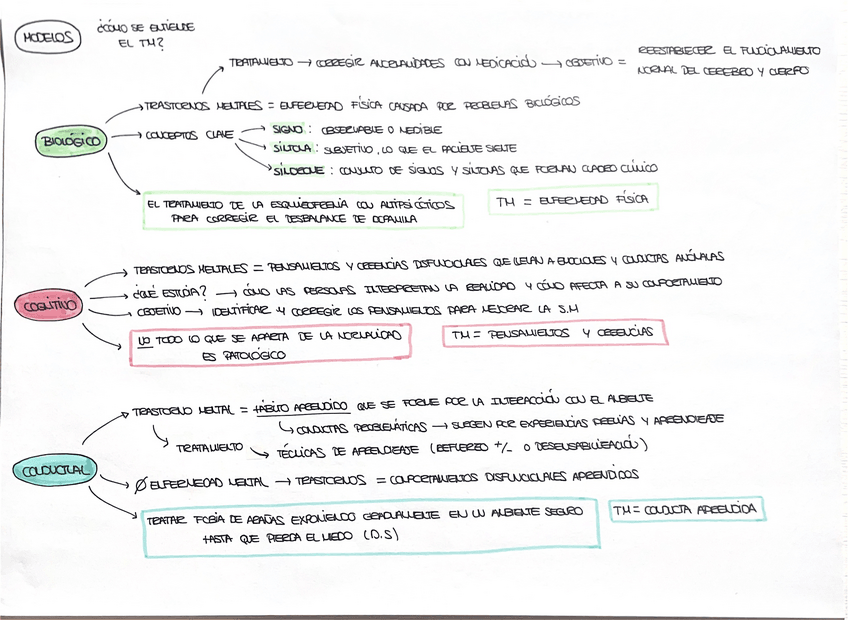 MODELOS
¿CÓMO SE ENTIENDE
EL TM?
TRATAMIENTO → CORREGIR ANORMALIDADES CON MEDICACIÓN → OBJETIVO =
REESTABLECER EL FUNCIONAMIENTO
NORMAL DEL CEREBRO Y CUERPO
BIOLÓGICO
TRASTORNOS MENTALES = ENFERMEDAD FÍSICA CAUSADA POR PROBLEMAS BIOLÓGICOS
CONCEPTOS CLAVE
SIGNO: OBSERVABLE O MEDIBLE
SÍNTOMA: SUBJETIVO, LO QUE EL PACIENTE SIENTE
SÍNDROME: CONJUNTO DE SIGNOS Y SÍNTOMAS QUE FORMAN CUADRO CLÍNICO
EL TRATAMIENTO DE LA ESQUIZOFRENIA CON ANTIPSICÓTICOS
PARA CORREGIR EL DESBALANCE DE DOPAMINA
TM = ENFERMEDAD FÍSICA
COGNITIVO
TRASTORNOS MENTALES = PENSAMIENTOS Y CREENCIAS DISFUNCIONALES QUE LLEVAN A EMOCIONES Y CONDUCTAS ANÓMALAS
¿QUÉ ESTUDIA? → CÓMO LAS PERSONAS INTERPRETAN LA REALIDAD Y CÓMO AFECTA A SU COMPORTAMIENTO
OBJETIVO → IDENTIFICAR Y CORREGIR LOS PENSAMIENTOS PARA MEJORAR LA S.M
NO TODO LO QUE SE APARTA DE LA NORMALIDAD
ES PATOLÓGICO
TM = PENSAMIENTOS Y CREENCIAS
CONDUCTUAL
TRASTORNO MENTAL = HÁBITO APRENDIDO QUE SE FORME POR LA INTERACCIÓN CON EL AMBIENTE
CONDUCTAS PROBLEMÁTICAS → SURGEN POR EXPERIENCIAS PREVIAS Y APRENDIZAJE
TRATAMIENTO → TÉCNICAS DE APRENDIZAJE (REFUERZO +/- O DESENSIBILIZACIÓN)
Ø ENFERMEDAD MENTAL → TRASTORNOS = COMPORTAMIENTOS DISFUNCIONALES APRENDIDOS
TRATAR FOBIA DE ARAÑAS EXPONIENDO GRADUALMENTE EN UN AMBIENTE SEGURO
HASTA QUE PIERDA EL MIEDO (D.S)
TM = CONDUCTA APRENDIDA